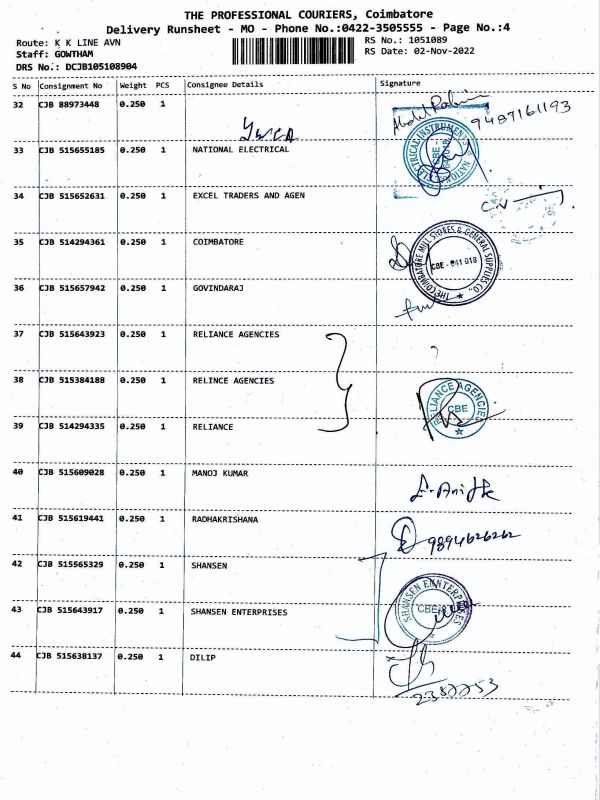 THE PROFESSIONAL COURIERS, Coimbatore
Delivery Runsheet - MO - Phone No.:0422-3505555 - Page No.:4
Route: K K LINE AVN
RS No.: 1051089
Staff: GOWTHAM
RS Date: 02-Nov-2022
DRS No.: DCJB105108904
S No Consignment No Weight PCS Consignee Details Signature
32 CJB 88973448 0.250 1
9487161193
33 CJB 515655185 0.250 1 NATIONAL ELECTRICAL
34 CJB 515652631 0.250 1 EXCEL TRADERS AND AGEN
35 CJB 514294361 0.250 1 COIMBATORE
THE COIMBATORE MILL STORES & GENERAL SUPPLIES CO.,
CBE - 641 018
36 CJB 515657942 0.250 1 GOVINDARAJ
37 CJB 515643923 0.250 1 RELIANCE AGENCIES
38 CJB 515384188 0.250 1 RELINCE AGENCIES
RELIANCE AGENCIES
CBE
39 CJB 514294335 0.250 1 RELIANCE
40 CJB 515609028 0.250 1 MANOJ KUMAR
41 CJB 515619441 0.250 1 RADHAKRISHANA
9894626262
42 CJB 515565329 0.250 1 SHANSEN
43 CJB 515643917 0.250 1 SHANSEN ENTERPRISES
44 CJB 515638137 0.250 1 DILIP